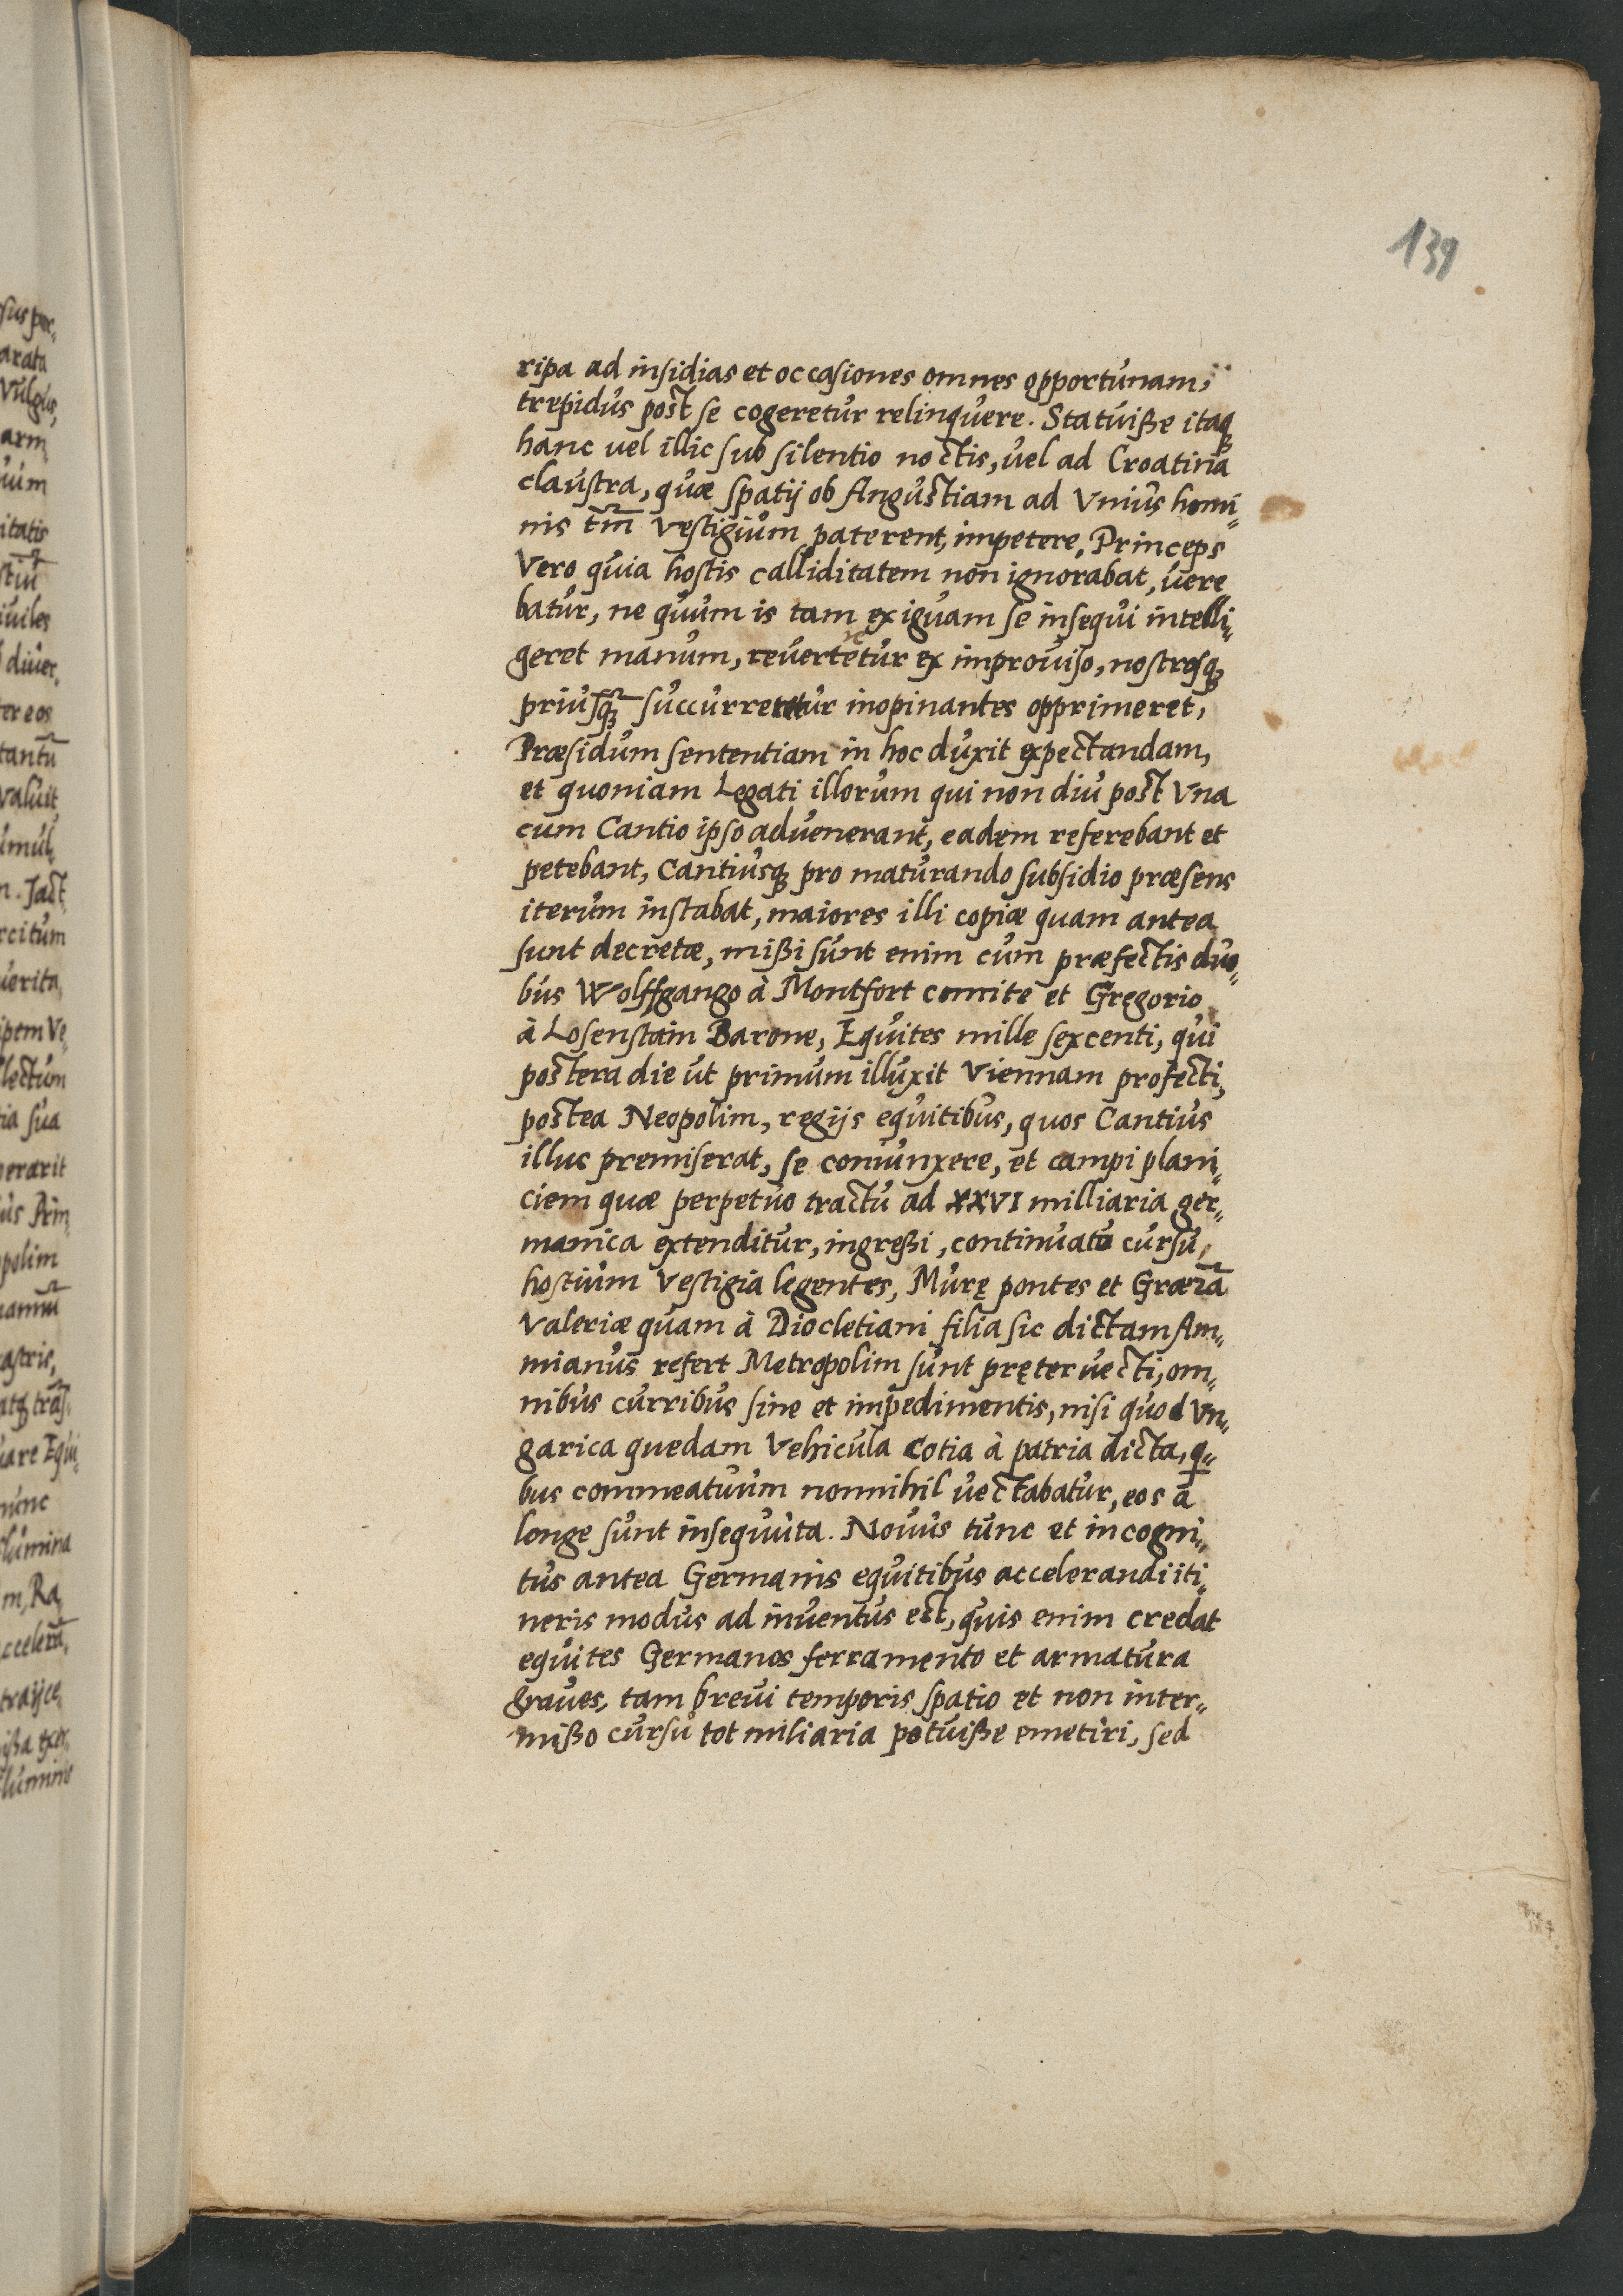 139
ripa ad insidias et occasiones omnes opportunam,
trepidus post se cogeretur relinquere. Statuiße itaqꝫ
hanc vel illic sub silentio noctis, vel ad Croatinā
claustra, quæ spatij ob Angustiam ad Vnius homi„
nis tm̄ Vestigium paterent, impetere, Princeps
Vero quia hostis calliditatem non ignorabat, vere
batur, ne quum is tam exiguam se insequi intelli„
geret manum, reverteretur ex improviso, nostrosqꝫ
priusqꝫ̄ succurreretur inopinantes opprimeret,
Præsidum sententiam in hoc duxit expectandam,
et quoniam Legati illorum qui non diu post Vna
cum Cantio ipso advenerant, eadem referebant et
petebant, Cantiusqꝫ pro maturando subsidio præsens
iterum instabat, maiores illi copiæ quam antea
sunt decretæ, mißi sunt enim cum præfectis duo„
bus Wolffgango à Montfort comite et Gręgorio
à Losenstain Barone, Equites mille sexcenti, qui
postera die ut primum illuxit Viennam profecti,
postea Neopolim, regijs equitibus, quos Cantius
illuc premiserat, se coniunxere, et campi plani„
ciem quæ perpetuo tractu ad XXVI milliaria ger„
manica extenditur, ingreßi, continuato cursu,
hostium Vestigia legentes, Murę pontes et Græzā
Valeriæ quam à Diocletiani filia sic dictam Am„
mianus refert Metropolim sunt pręter vecti, om„
nibus curribus sine et impedimentis, nisi quod Vn„
garica quedam Vehicula Cotia à patria dicta, q„
bus commeatuum nonnihil vectabatur, eos a
longe sunt insequuta. Novus tunc et incogni„
tus antea Germanis equitibus accelerandi iti„
neris modus ad inventus est, quis enim credat
equites Germanos ferramento et armatura
graves, tam brevi temporis spatio et non inter„
mißo cursu tot miliaria potuiße emetiri, sed
sus per„
arata
Vulgus,
arm„
uum
itatis
stiū
iviles
diver„
ter eos
tantū
valuit
umul„
n. Jact„
rcitum
verita„
ipem Ve„
lectum
tia sua
nerarit
us Prin„
polim
astris,
atqꝫ trās„
uare Equi„
nunc
lumina
m, Ra„
ccelerā„
traijce„
ißa exer„
luminis